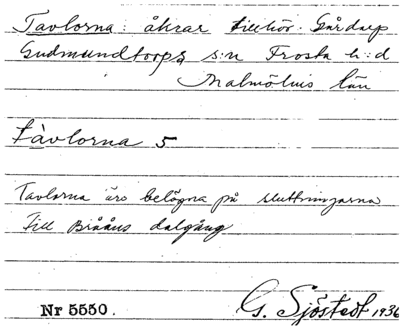 Tavlorna: åkrar tillhör. Gårdarp
Gudmundtorps s:n Frosta h:d
Malmöhus län
tàvlorna 5
Tavlorna äro belägna på sluttningarna
till Brååns dalgång
Nr 5550. G. Sjöstedt 1936